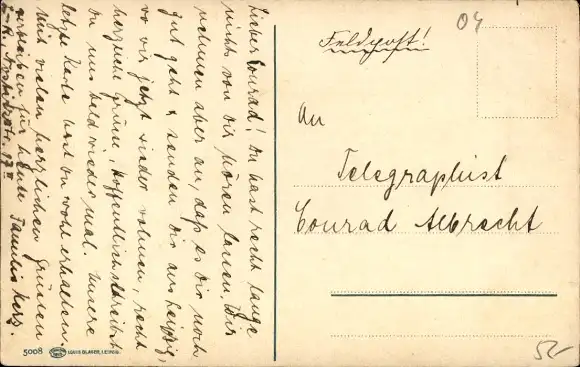 Lieber Conrad! Du hast recht lange
nichts von Dir hören lassen. Wir
nehmen aber an, daß es Dir noch
gut geht & senden Dir aus Leipzig,
wo wir jetzt wieder wohnen, recht
herzliche Grüsse, hoffentlich schreibst
Du uns bald wieder mal. Unsere
letzte Karte hast Du wohl erhalten.
Mit vielen herzlichen Grüssen
verbleiben für heute Familie
Feldpost!
04
An
Telegraphist
Conrad Albrecht
5008
LOUIS GLASER, LEIPZIG.